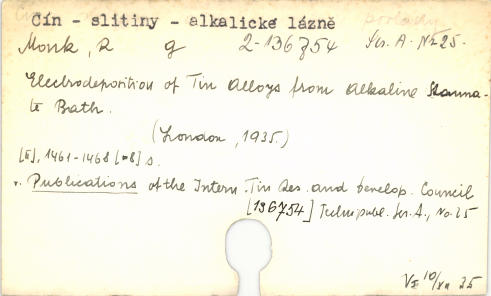 Čín - slitiny - alkalické lázně
Monk, R g 2-136754 Ser. A - No 25.
Electrodeposition of Tin Alloys from Alkaline Stanna-
te Bath.
(London, 1935.)
[8], 1461-1468 [=8] s.
v. Publications of the Intern. Tin Res. and Develop. Council
[136754] Techn. publ. Ser. A., No. 25
35